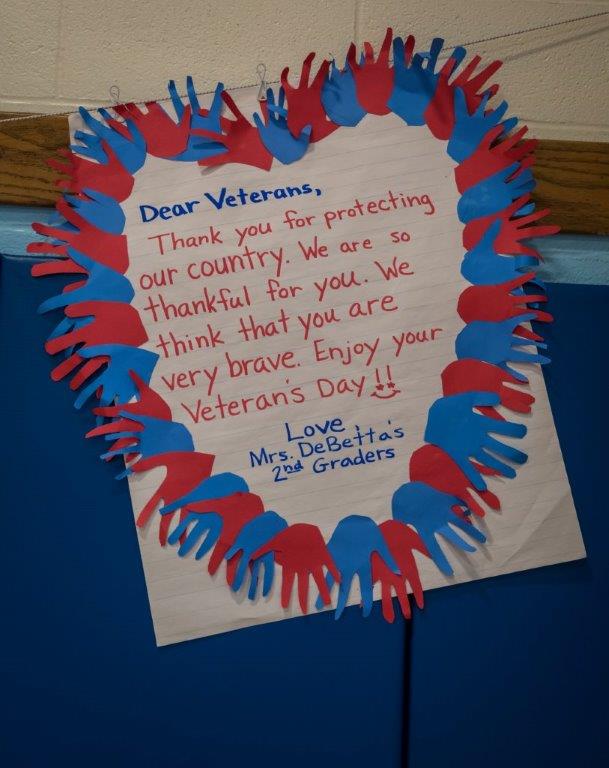 Dear Veterans,
Thank you for protecting
our country. We are so
thankful for you. We
think that you are
very brave. Enjoy your
Veteran's Day!!
Love,
Mrs. DeBetta's
2nd Graders